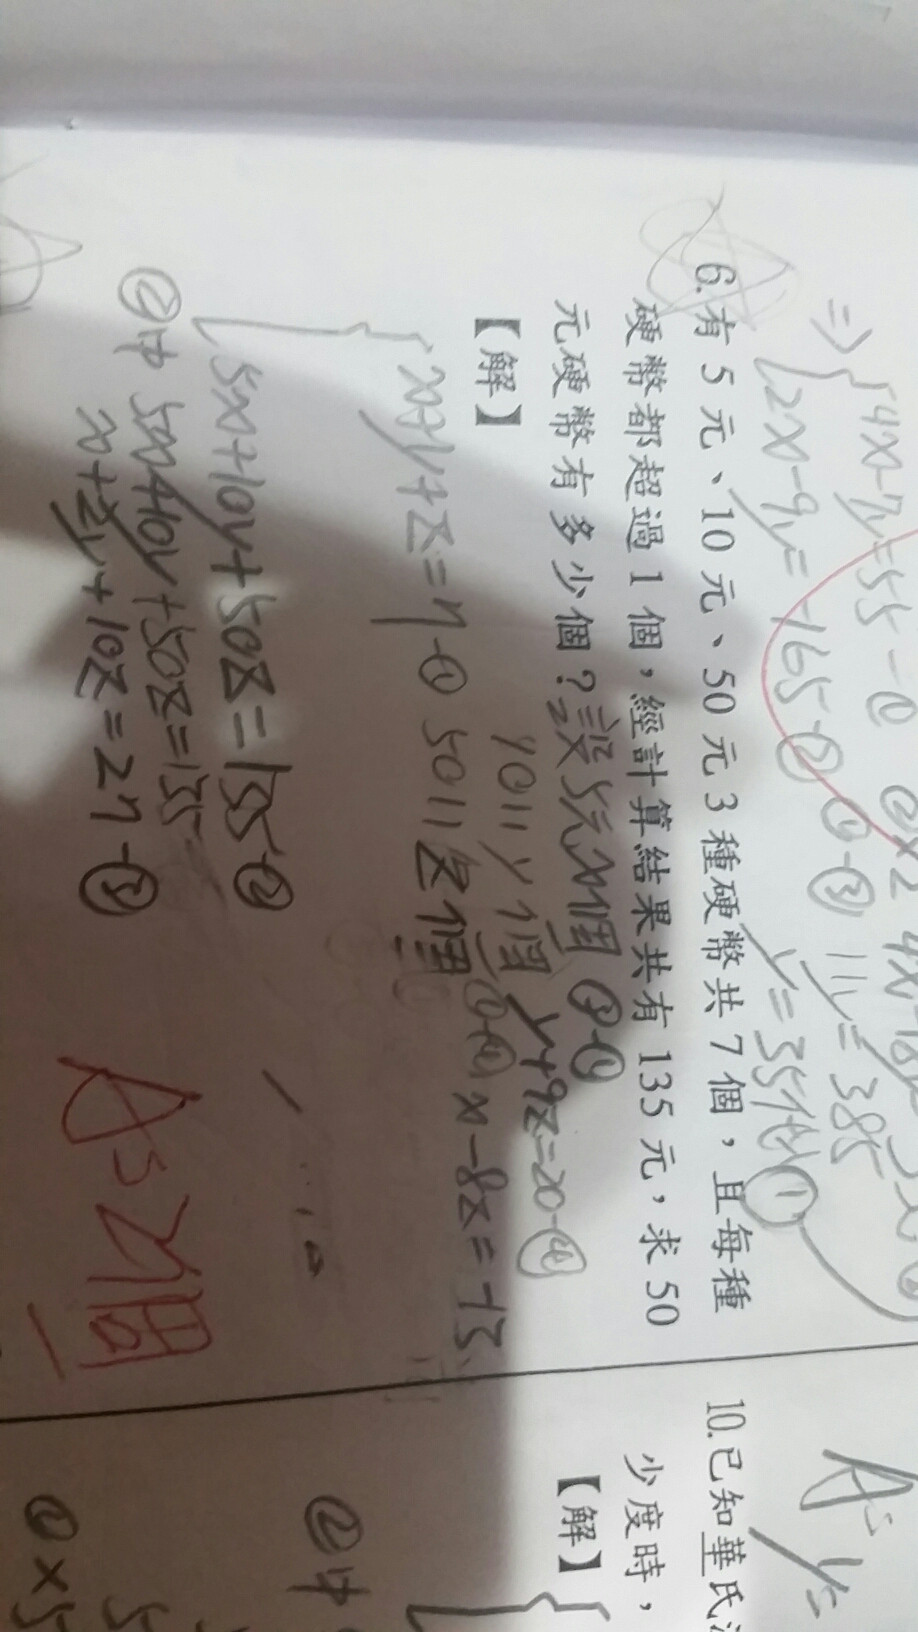 ⇒{4x-7y=55-①
2x-9y=-165-②
①-③ 11y=385
y=35
6.有5元、10元、50元3種硬幣共7個,且每種
硬幣都超過1個,經計算結果共有135元,求50
元硬幣有多少個?設5元x個
10〃y個
50〃z個
【解】
{x+y+z=7-①
5x+10y+50z=135-②
②中 5x+10y+50z=135
x+2y+10z=27-③
③-①
y+9z=20-④
①-④ x-8z=-13
A:2個
10.已知華氏
少度時,
【解】
②中
①×5